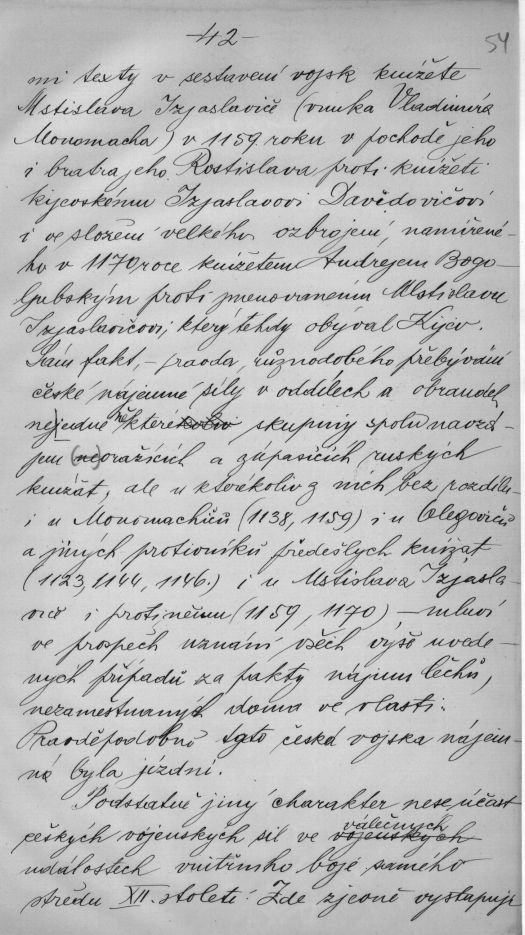 -42-
54
mi texty v sestavení vojsk knížete
Mstislava Izjaslaviče (vnuka Vladimíra
Monomacha) v 1159 roku v pochodě jeho
i bratra jeho Rostislava proti knížeti
kijevskému Izjaslavovi Davidovičovi
i ve složení velkého ozbrojení, namířené-
ho v 1170 roce knížetem Andrejem Bogo-
ljubským proti jmenovanému Mstislavu
Izjaslavičovi, který tehdy obýval Kijev.
Sám fakt, – pravda, různodobého přebývání
české nájemné síly v oddílech a obraně
nejedné některé skupiny spolu navzá-
jem (ne)oražících a zápasících ruských
knížat, ale u kterékoliv z nich bez rozdílu
i u Monomachičů (1138, 1159) i u Olegovičů
a jiných protivníků předešlých knížat
(1123, 1144, 1146.) i u Mstislava Izjasla-
viče i proti němu (1159, 1170) – mluví
ve prospěch uznání všech výše uvede-
ných případů za fakty nájmu lechů,
nezaměstnaných doma ve vlasti.
Pravděpodobně tato česká vojska nájem-
ná byla jízdní.
Podstatně jiný charakter nese účast
českých vojenských sil ve válečných vojenských
událostech vnitřního boje samého
středu XII. století. Zde zjevně vystupuje